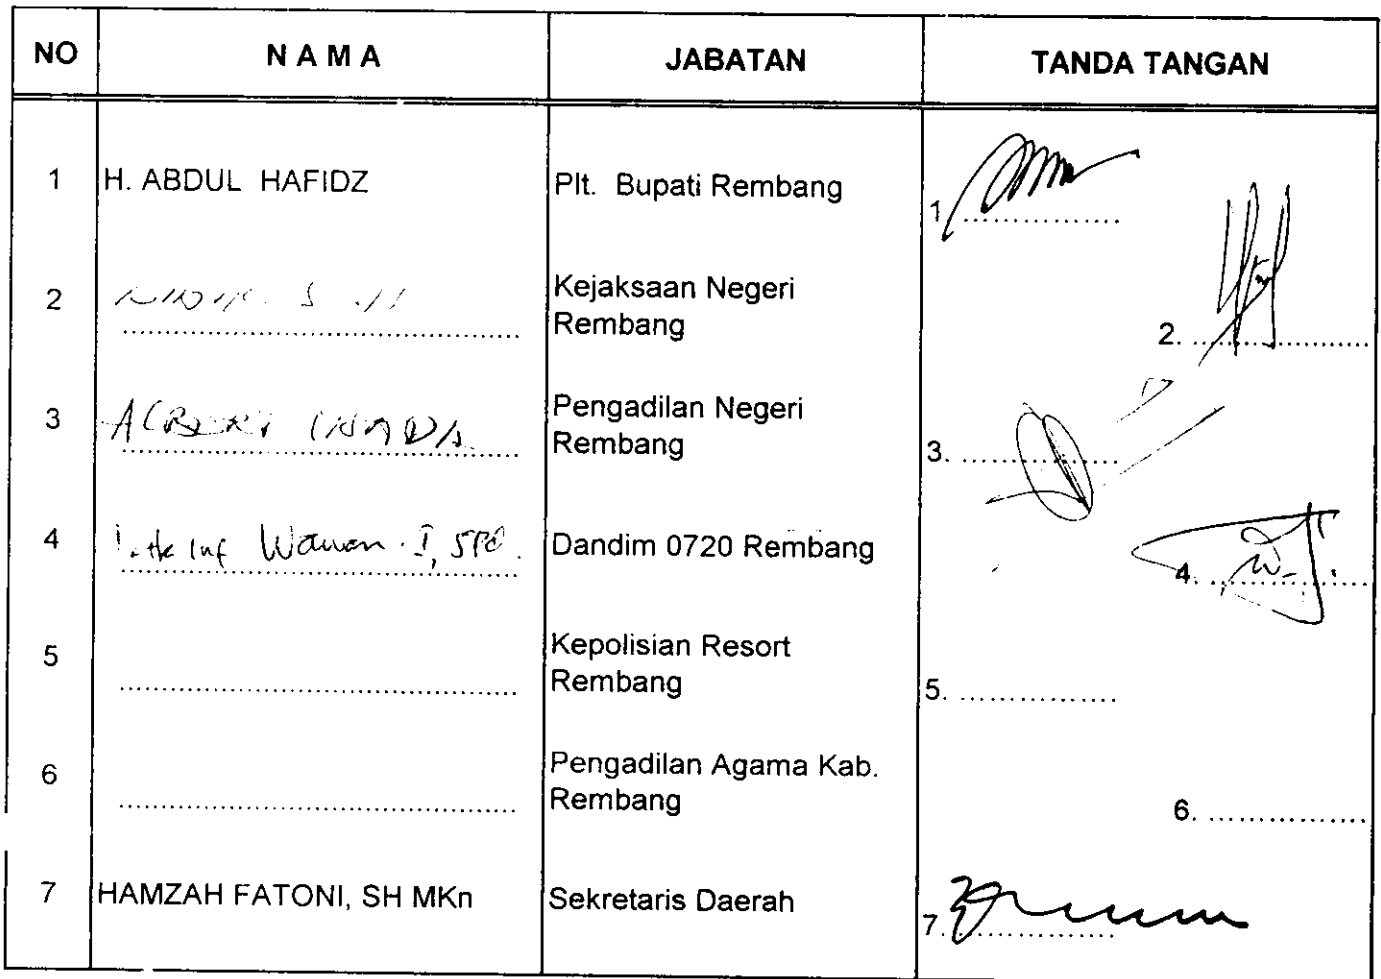 NO NAMA JABATAN TANDA TANGAN
1 H. ABDUL HAFIDZ Plt. Bupati Rembang 1. ................
2 ................ Kejaksaan Negeri
Rembang 2. ................
3 ................ Pengadilan Negeri
Rembang 3. ................
4 Inf Wawan. I, Dandim 0720 Rembang 4. ................
5 ................ Kepolisian Resort
Rembang 5. ................
6 ................ Pengadilan Agama Kab.
Rembang 6. ................
7 HAMZAH FATONI, SH MKn Sekretaris Daerah 7. ................